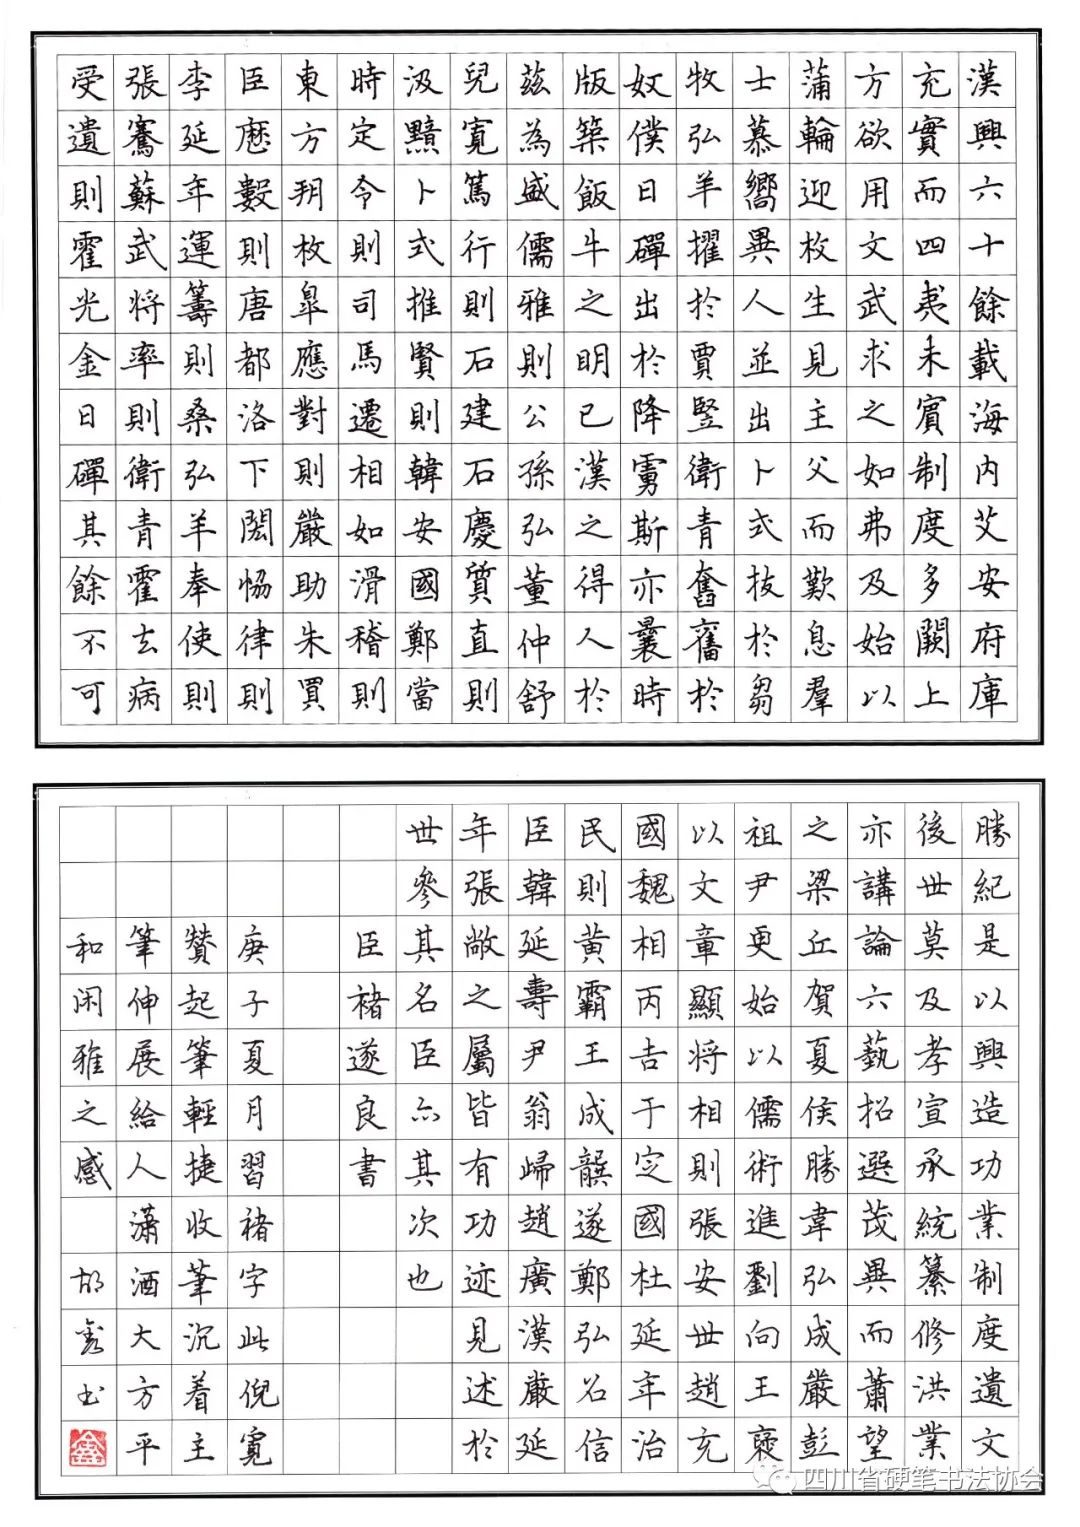 漢興六十餘載海内艾安府庫
充實而四夷未賓制度多闕上
方欲用文武求之如弗及始以
蒲輪迎枚生見主父而歎息羣
士慕嚮異人並出卜式拔於芻
牧弘羊擢於賈豎衛青奮舊於
奴僕日磾出於降虜斯亦曩時
版築飯牛之明已漢之得人於
茲為盛儒雅則公孫弘董仲舒
兒寬篤行則石建石慶質直則
汲黯卜式推賢則韓安國鄭當
時定令則司馬遷相如滑稽則
東方朔枚皋應對則嚴助朱買
臣曆數則唐都洛下閎恊律則
李延年運籌則桑弘羊奉使則
張騫蘇武将率則衛青霍去病
受遺則霍光金日磾其餘不可
勝紀是以興造功業制度遺文
後世莫及孝宣承統纂修洪業
亦講論六藝招選茂異而蕭望
之梁丘賀夏侯勝韋弘成嚴彭
祖尹更始以儒術進劉向王襃
以文章顯将相則張安世趙充
國魏相丙吉于定國杜延年治
民則黃霸王成龔遂鄭弘召信
臣韓延壽尹翁歸趙廣漢嚴延
年張敞之屬皆有功迹見述於
世參其名臣亦其次也
臣褚遂良書
庚子夏月習褚字此倪寬
贊起筆輕捷收筆沉着主
筆伸展給人瀟酒大方平
和闲雅之感 胡鑫书
鑫
四川省硬笔书法协会